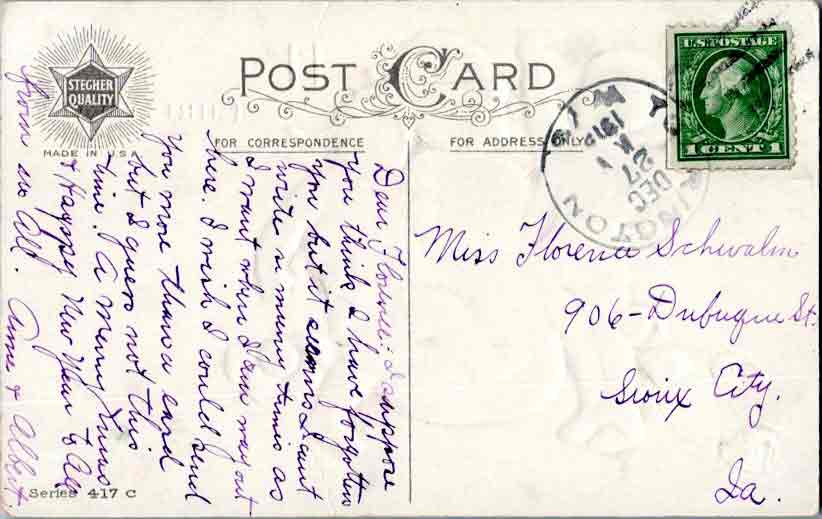 STECHER
QUALITY
MADE IN U.S.A.
POST CARD
FOR CORRESPONDENCE
FOR ADDRESS ONLY
U.S. POSTAGE
1 CENT 1
DEC
27
191
INGTON
Dear Florence:- I suppose
you think I have forgotten
you but it seems I cant
write as many times as
I want when I am way out
here. I wish I could send
You more than a card
but I guess not this
time. A Merry Xmas
& Happy New Year to All
from us All. Anna & Albert
Miss Florence Schwalm
906-Dubuque St.
Sioux City.
Ia.
Series 417 C